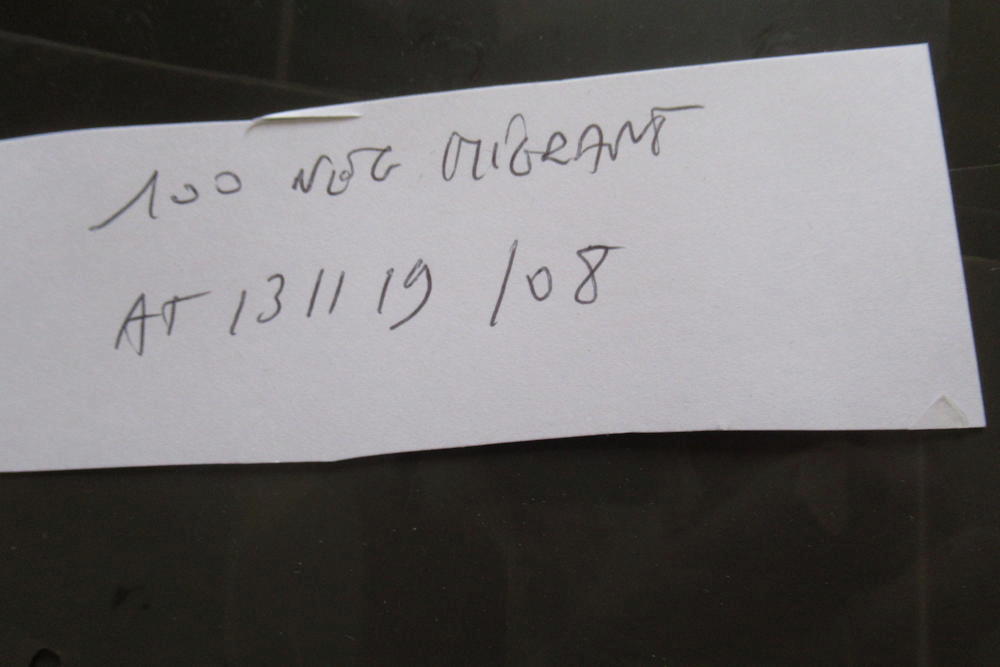 100 NEG MIGRANT
AT 131119 /08